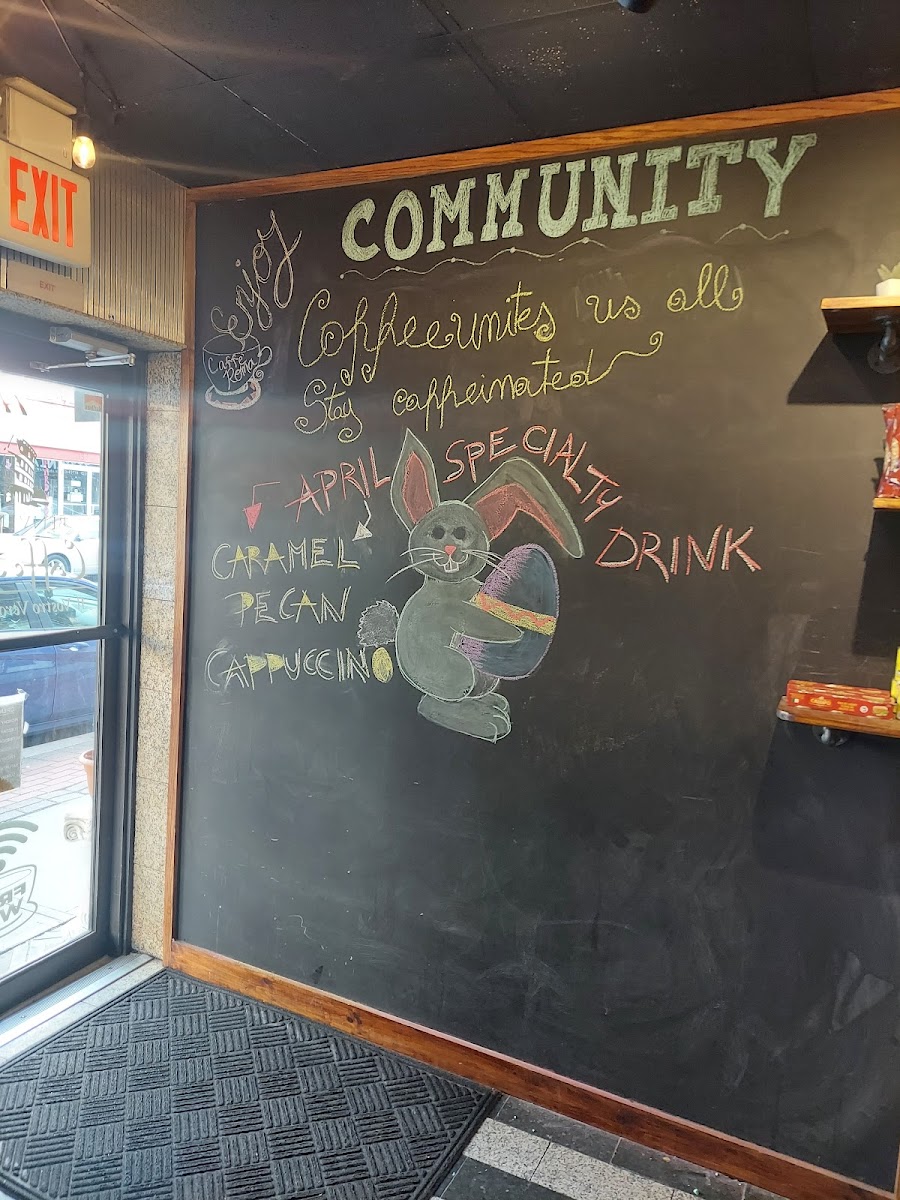 EXIT
EXIT
COMMUNITY
Enjoy
Caffe
Roma
Coffee unites us all
Stay caffeinated
APRIL SPECIALTY DRINK
CARAMEL
PECAN
CAPPUCCINO